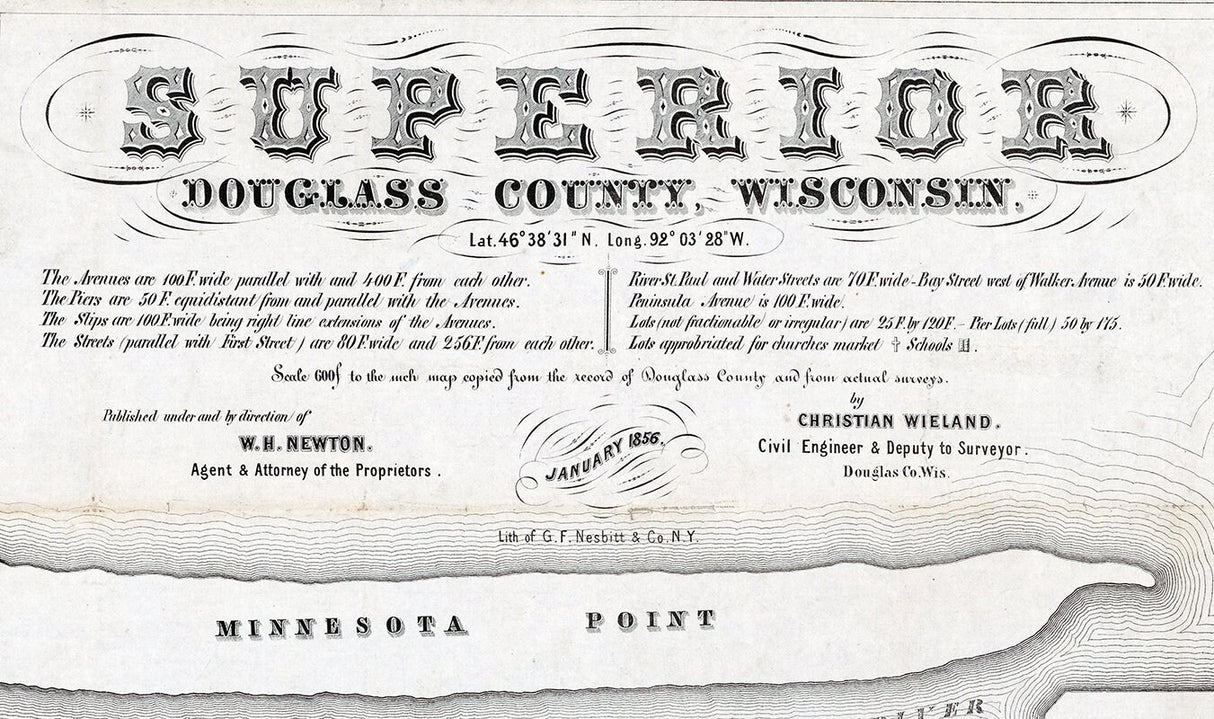 SUPERIOR
DOUGLASS COUNTY, WISCONSIN.
Lat. 46° 38' 31" N. Long. 92° 03' 28" W.
The Avenues are 100 F. wide parallel with and 400 F. from each other.
The Piers are 50 F. equidistant from and parallel with the Avenues.
The Slips are 100 F. wide being right line extensions of the Avenues.
The Streets (parallel with First Street) are 80 F. wide and 256 F. from each other.
River St. Paul and Water Streets are 70 F. wide - Bay Street west of Walker Avenue is 50 F. wide.
Peninsula Avenue is 100 F. wide.
Lots (not fractionable or irregular) are 25 F. by 120 F. - Pier Lots (full) 50 by 175.
Lots approbriated for churches market ✝ Schools
Scale 600f to the inch map copied from the record of Douglass County and from actual surveys.
Published under and by direction of
W. H. NEWTON.
Agent & Attorney of the Proprietors.
JANUARY 1856.
by
CHRISTIAN WIELAND.
Civil Engineer & Deputy to Surveyor.
Douglas Co. Wis.
Lith of G. F. Nesbitt & Co. N.Y.
MINNESOTA POINT